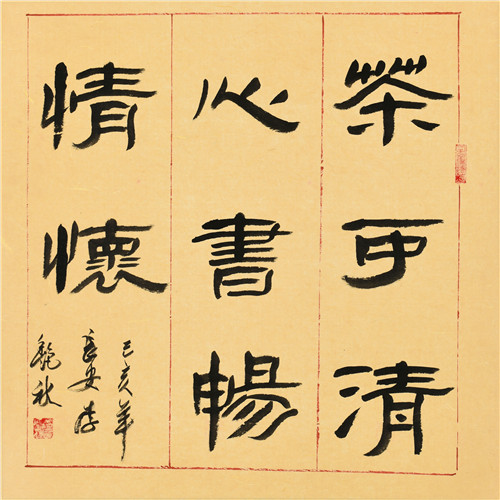 茶可清
心書暢
情懷
己亥年
長安李
秋